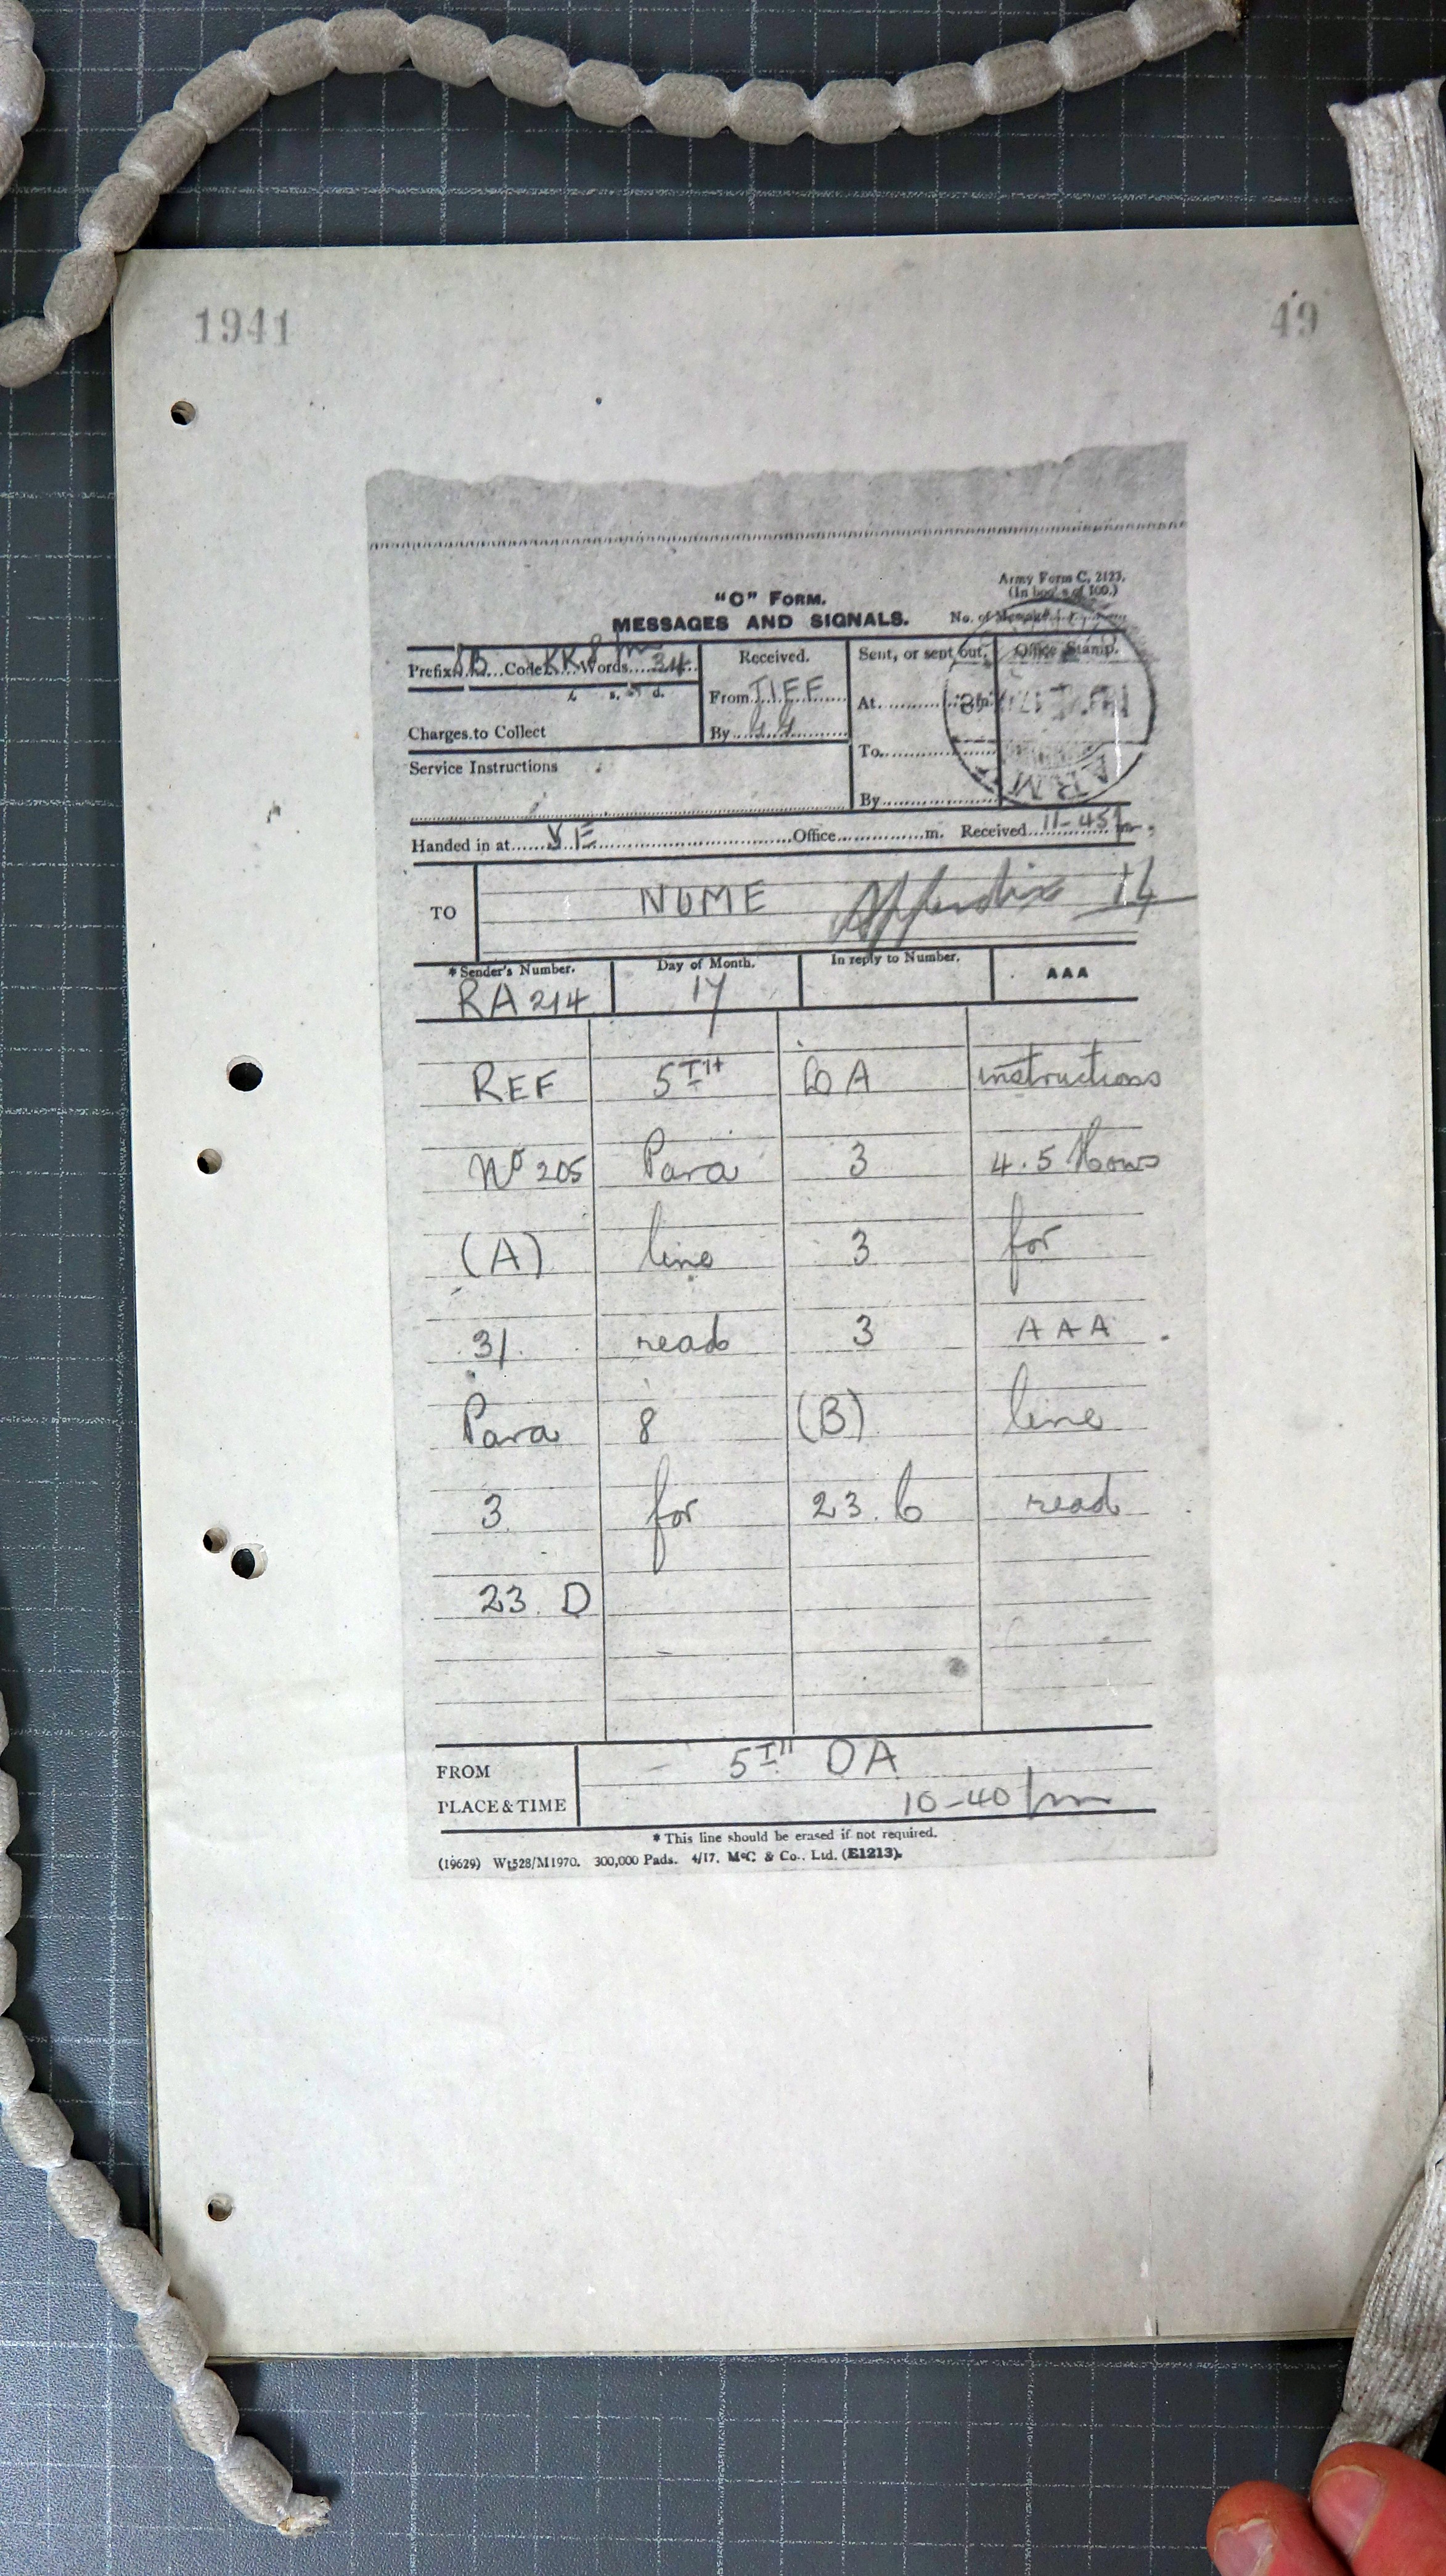 1941 49
Army Form C. 2123.
(In books of 100.)
"C" FORM.
MESSAGES AND SIGNALS. No. of Message
Prefix SB Code KK 8 pm Words 34 Received. Sent, or sent out. Office Stamp.
£ s. d. From JIFF At m.
Charges to Collect By To
Service Instructions By
Handed in at YE Office m. Received 11-45
TO NUME Appendix 14
*Sender's Number. Day of Month. In reply to Number. AAA
RA 214 17
REF 5TH DA instructions
No 205 Para 3 4.5 Hows
(A) line 3 for
31. read 3 AAA
Para 8 (B) line
3 for 23.b read
23. D
FROM 5TH DA
PLACE & TIME 10-40 pm
* This line should be erased if not required.
(19629) Wt528/M1970. 300,000 Pads. 4/17. McC & Co., Ltd. (E1213).